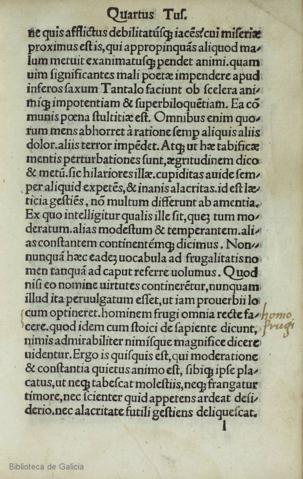 Quartus Tus.
ne quis afflictus debilitatusq́ꝫ iacēs? cui miseriæ
proximus est is, qui appropinquās aliquod ma-
lum metuit exanimatusq́ꝫ pendet animi. quam
uim significantes mali poetæ impendere apud
inferos saxum Tantalo faciunt ob scelera ani-
miq́ꝫ impotentiam & superbiloquētiam. Ea cō
munis pœna stultitiæ est. Omnibus enim quo-
rum mens abhorret à ratione semp aliquis aliis
dolor. aliis terror impēdet. Atq́ꝫ ut hæ tabificæ
mentis perturbationes sunt, ægritudinem dico
& metū. sic hilariores illæ. cupiditas auide sem-
per aliquid expetēs, & inanis alacritas. id est læ-
ticia gestiēs, nō multum differunt ab amentia.
Ex quo intelligitur qualis ille sit, queꝫ tum mo-
deratum. alias modestum & temperantem. ali-
as constantem continentēmq́ꝫ dicimus. Non-
nunquā hæc eadeꝫ uocabula ad frugalitatis no
men tanquā ad caput referre uolumus. Quod
nisi eo nomine uirtutes continerētur, nunquam
illud ita peruulgatum esset, ut iam prouerbii lo
cum optineret. hominem frugi omnia recte fa-
cere. quod idem cum stoici de sapiente dicunt,
nimis admirabiliter nimisque magnifice dicere
uidentur. Ergo is quisquis est, qui moderatione
& constantia quietus animo est, sibiq́ꝫ ipse pla-
catus, ut neq́ꝫ tabescat molestiis, neq́ꝫ frangatur
timore, nec scienter quid appetens ardeat desi-
derio. nec alacritate futili gestiens deliquescat.
l
homo
frugi
Biblioteca de Galicia